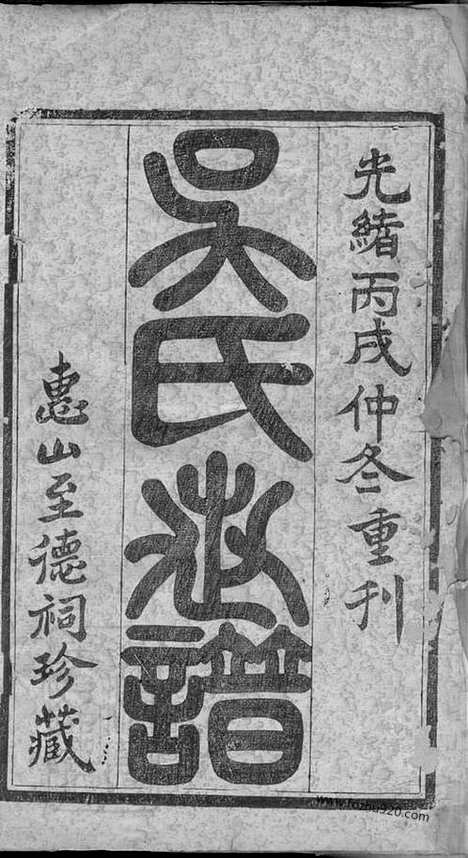 光緒丙戌仲冬重刊
吳氏譜
惠山至德祠珍藏
www.fozhu920.com